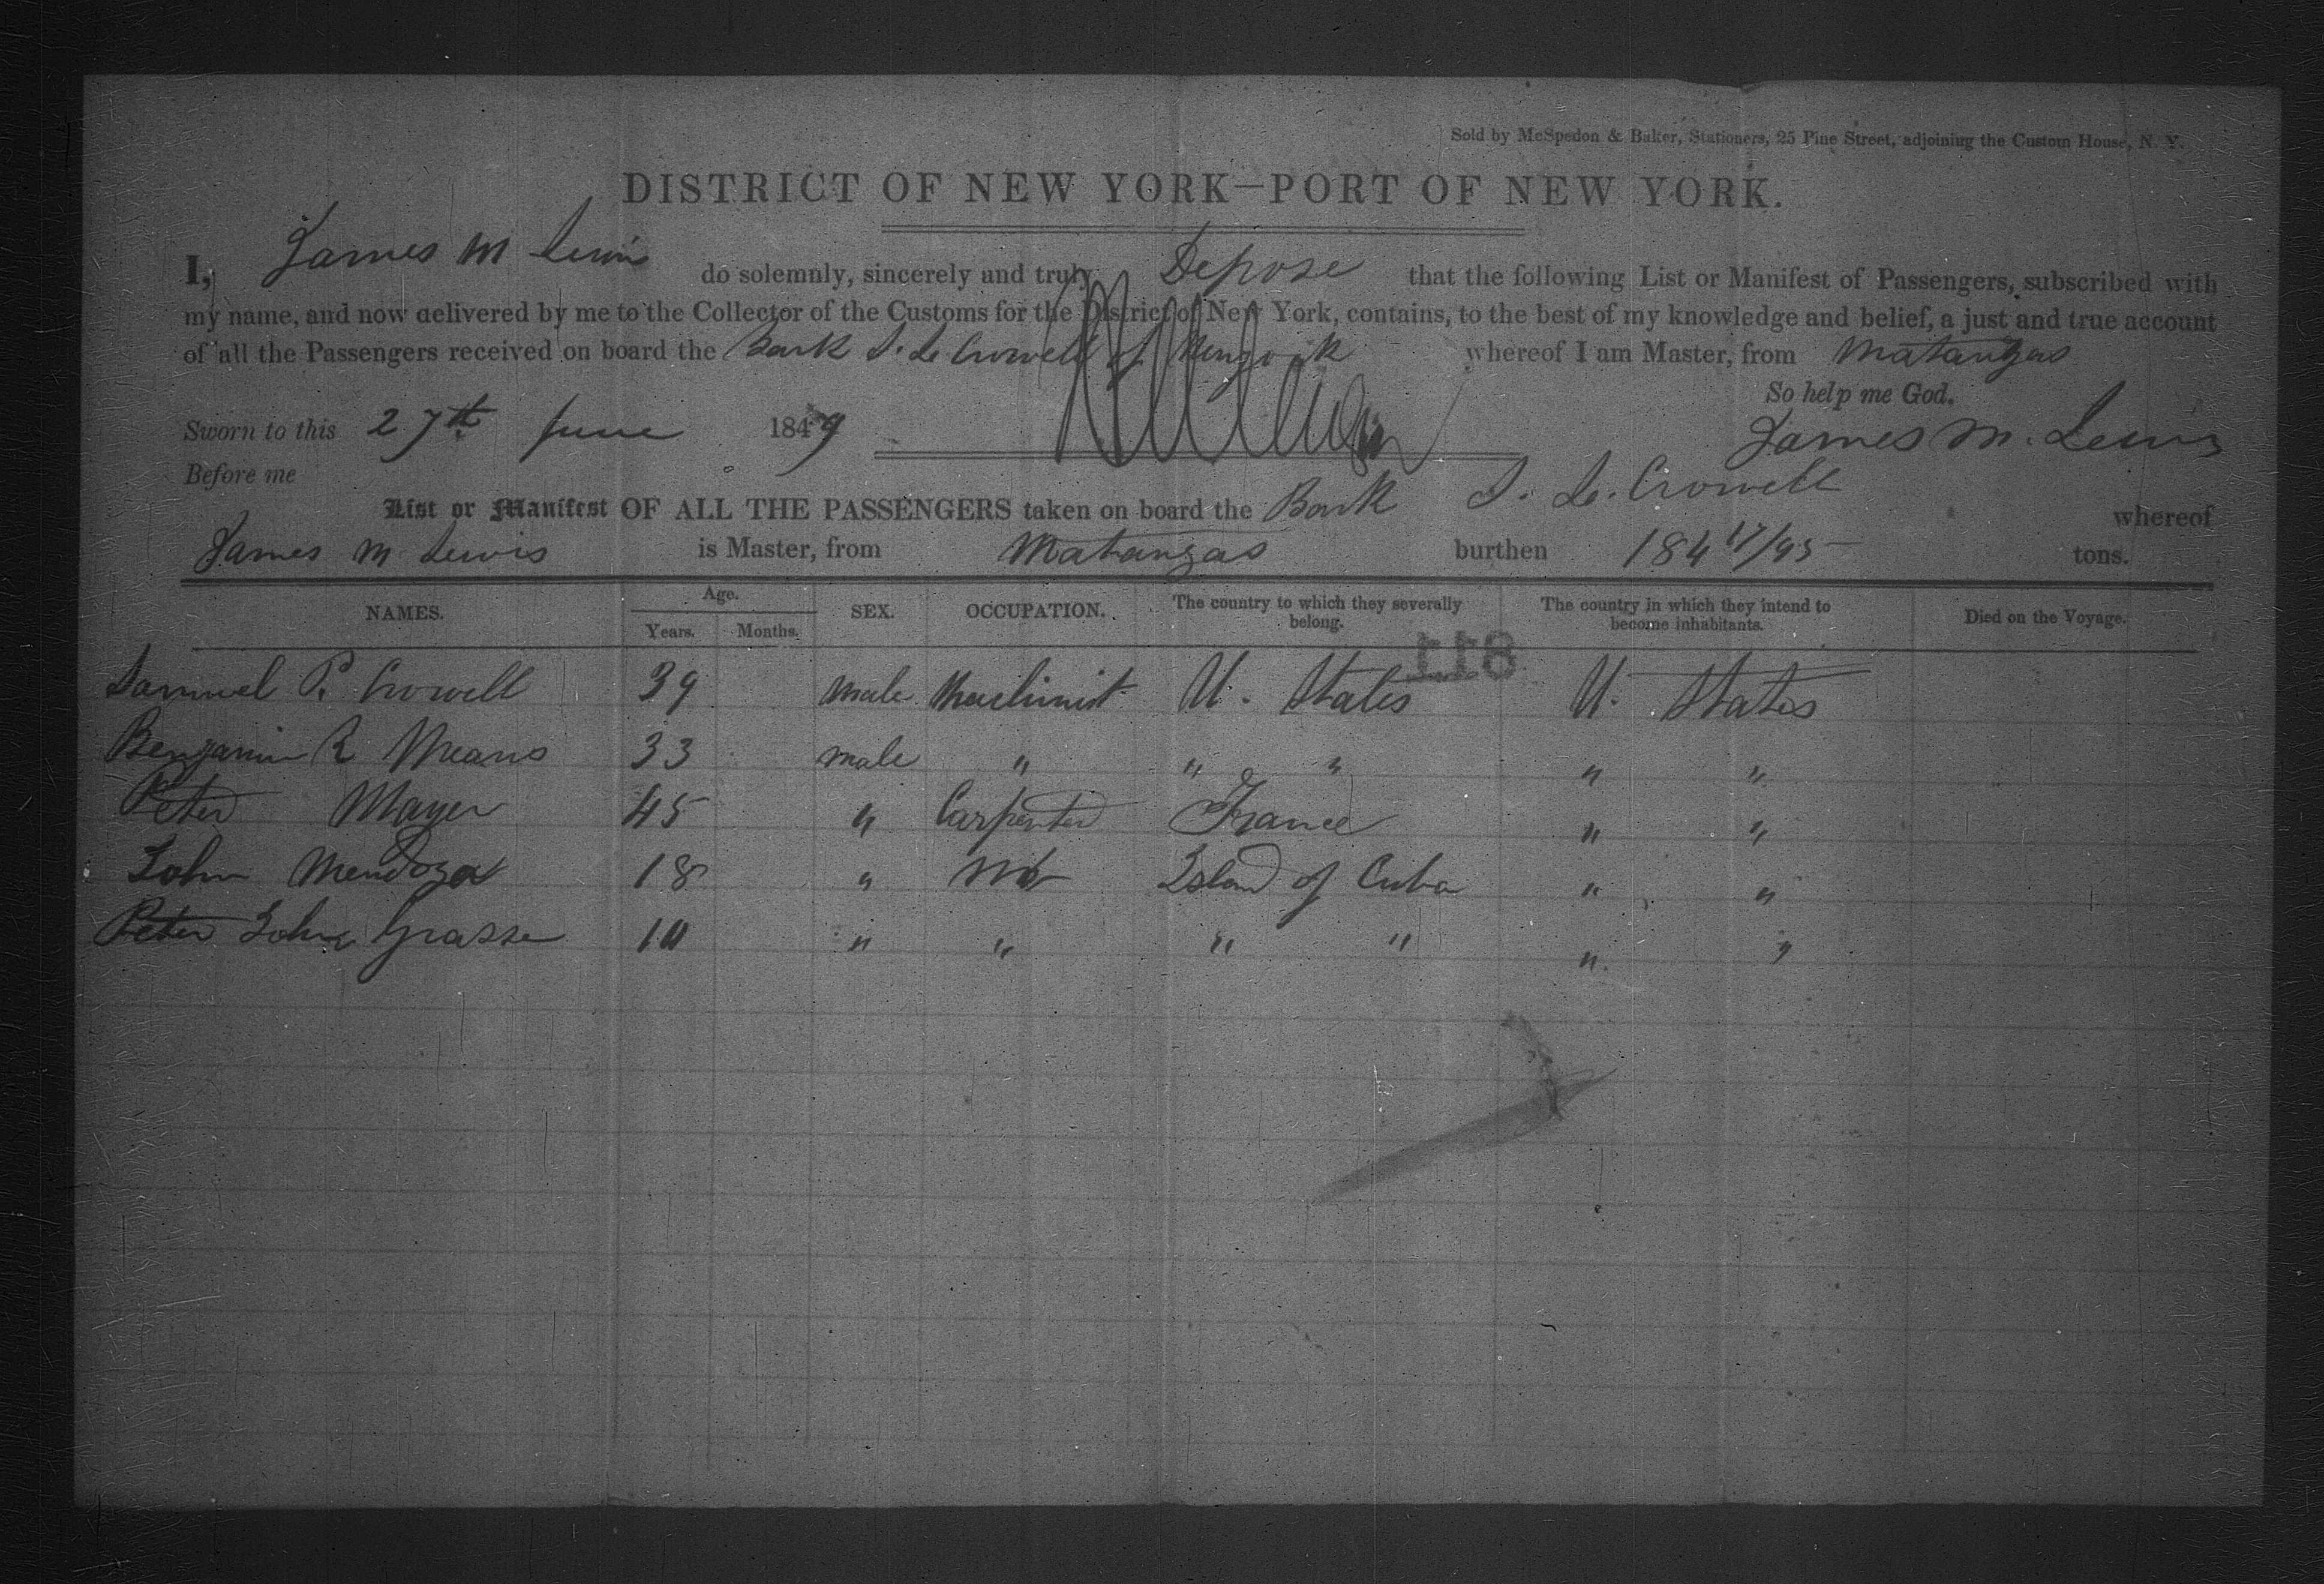 Sold by McSpedon & Baker, Stationers, 25 Pine Street, adjoining the Custom House, N. Y.
DISTRICT OF NEW YORK—PORT OF NEW YORK.
I, James M Lewis do solemnly, sincerely and truly Depose that the following List or Manifest of Passengers, subscribed with
my name, and now delivered by me to the Collector of the Customs for the District of New York, contains, to the best of my knowledge and belief, a just and true account
of all the Passengers received on board the Bark S. L. Crowell of whereof I am Master, from Matanzas
So help me God.
Sworn to this 27th June 1849 James M. Lewis
Before me
List or Manifest OF ALL THE PASSENGERS taken on board the Bark S. L. Crowell whereof
James M Lewis is Master, from Matanzas burthen 184 17/95 tons.
NAMES. Age. Years. Months. SEX. OCCUPATION. The country to which they severally belong. The country in which they intend to become inhabitants. Died on the Voyage.
811
Samuel P. Crowell 39 male Machinist U. States U. States
Benjamin R Means 33 male " " " " "
Peter Mayer 45 " Carpenter France " "
John Mendoza 18 " Island of Cuba " "
Peter John Grasse " " " " " "